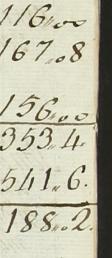 116,,00
167,,8
156,,00
353,,4.
541,,6.
188,,2.